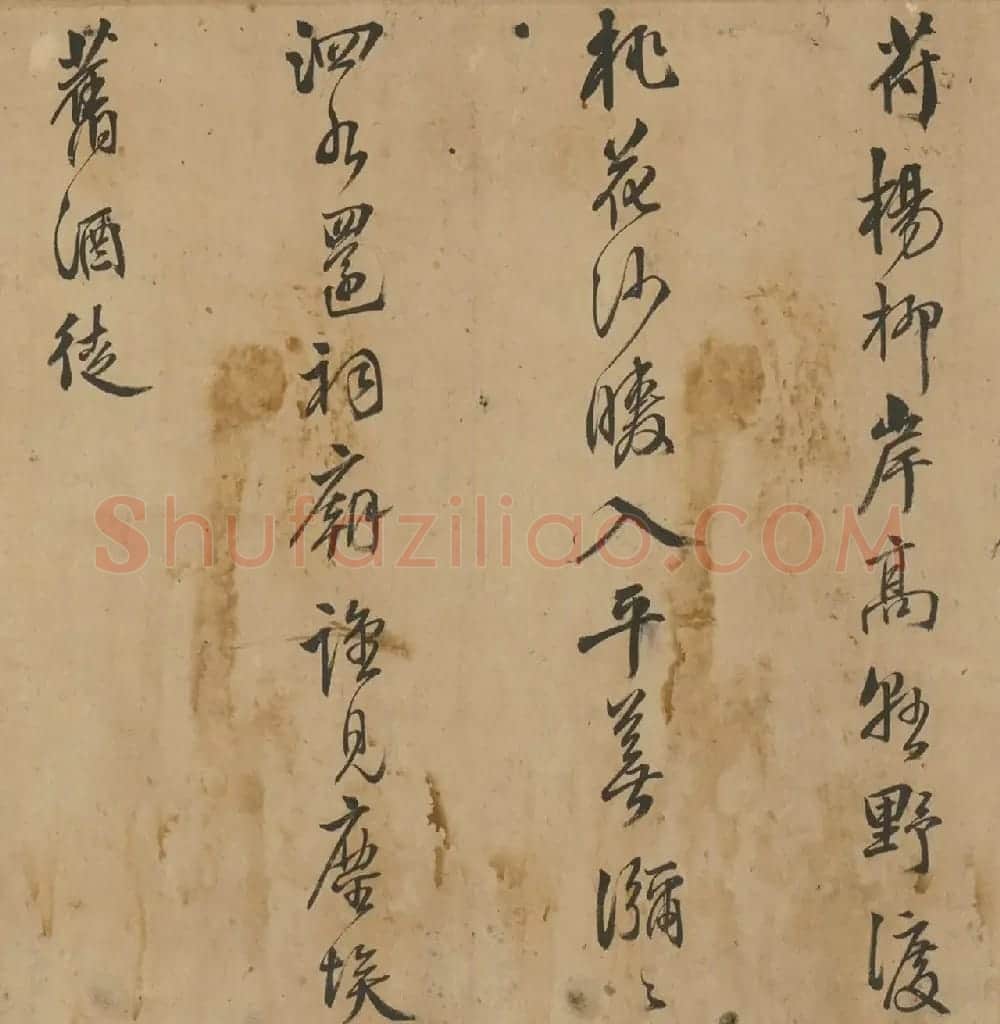 荷楊柳岸高野渡
桃花沙暖入平蕪瀰〻
泗水還祠廟誰見塵埃
舊酒徒
Shufaziliao.COM